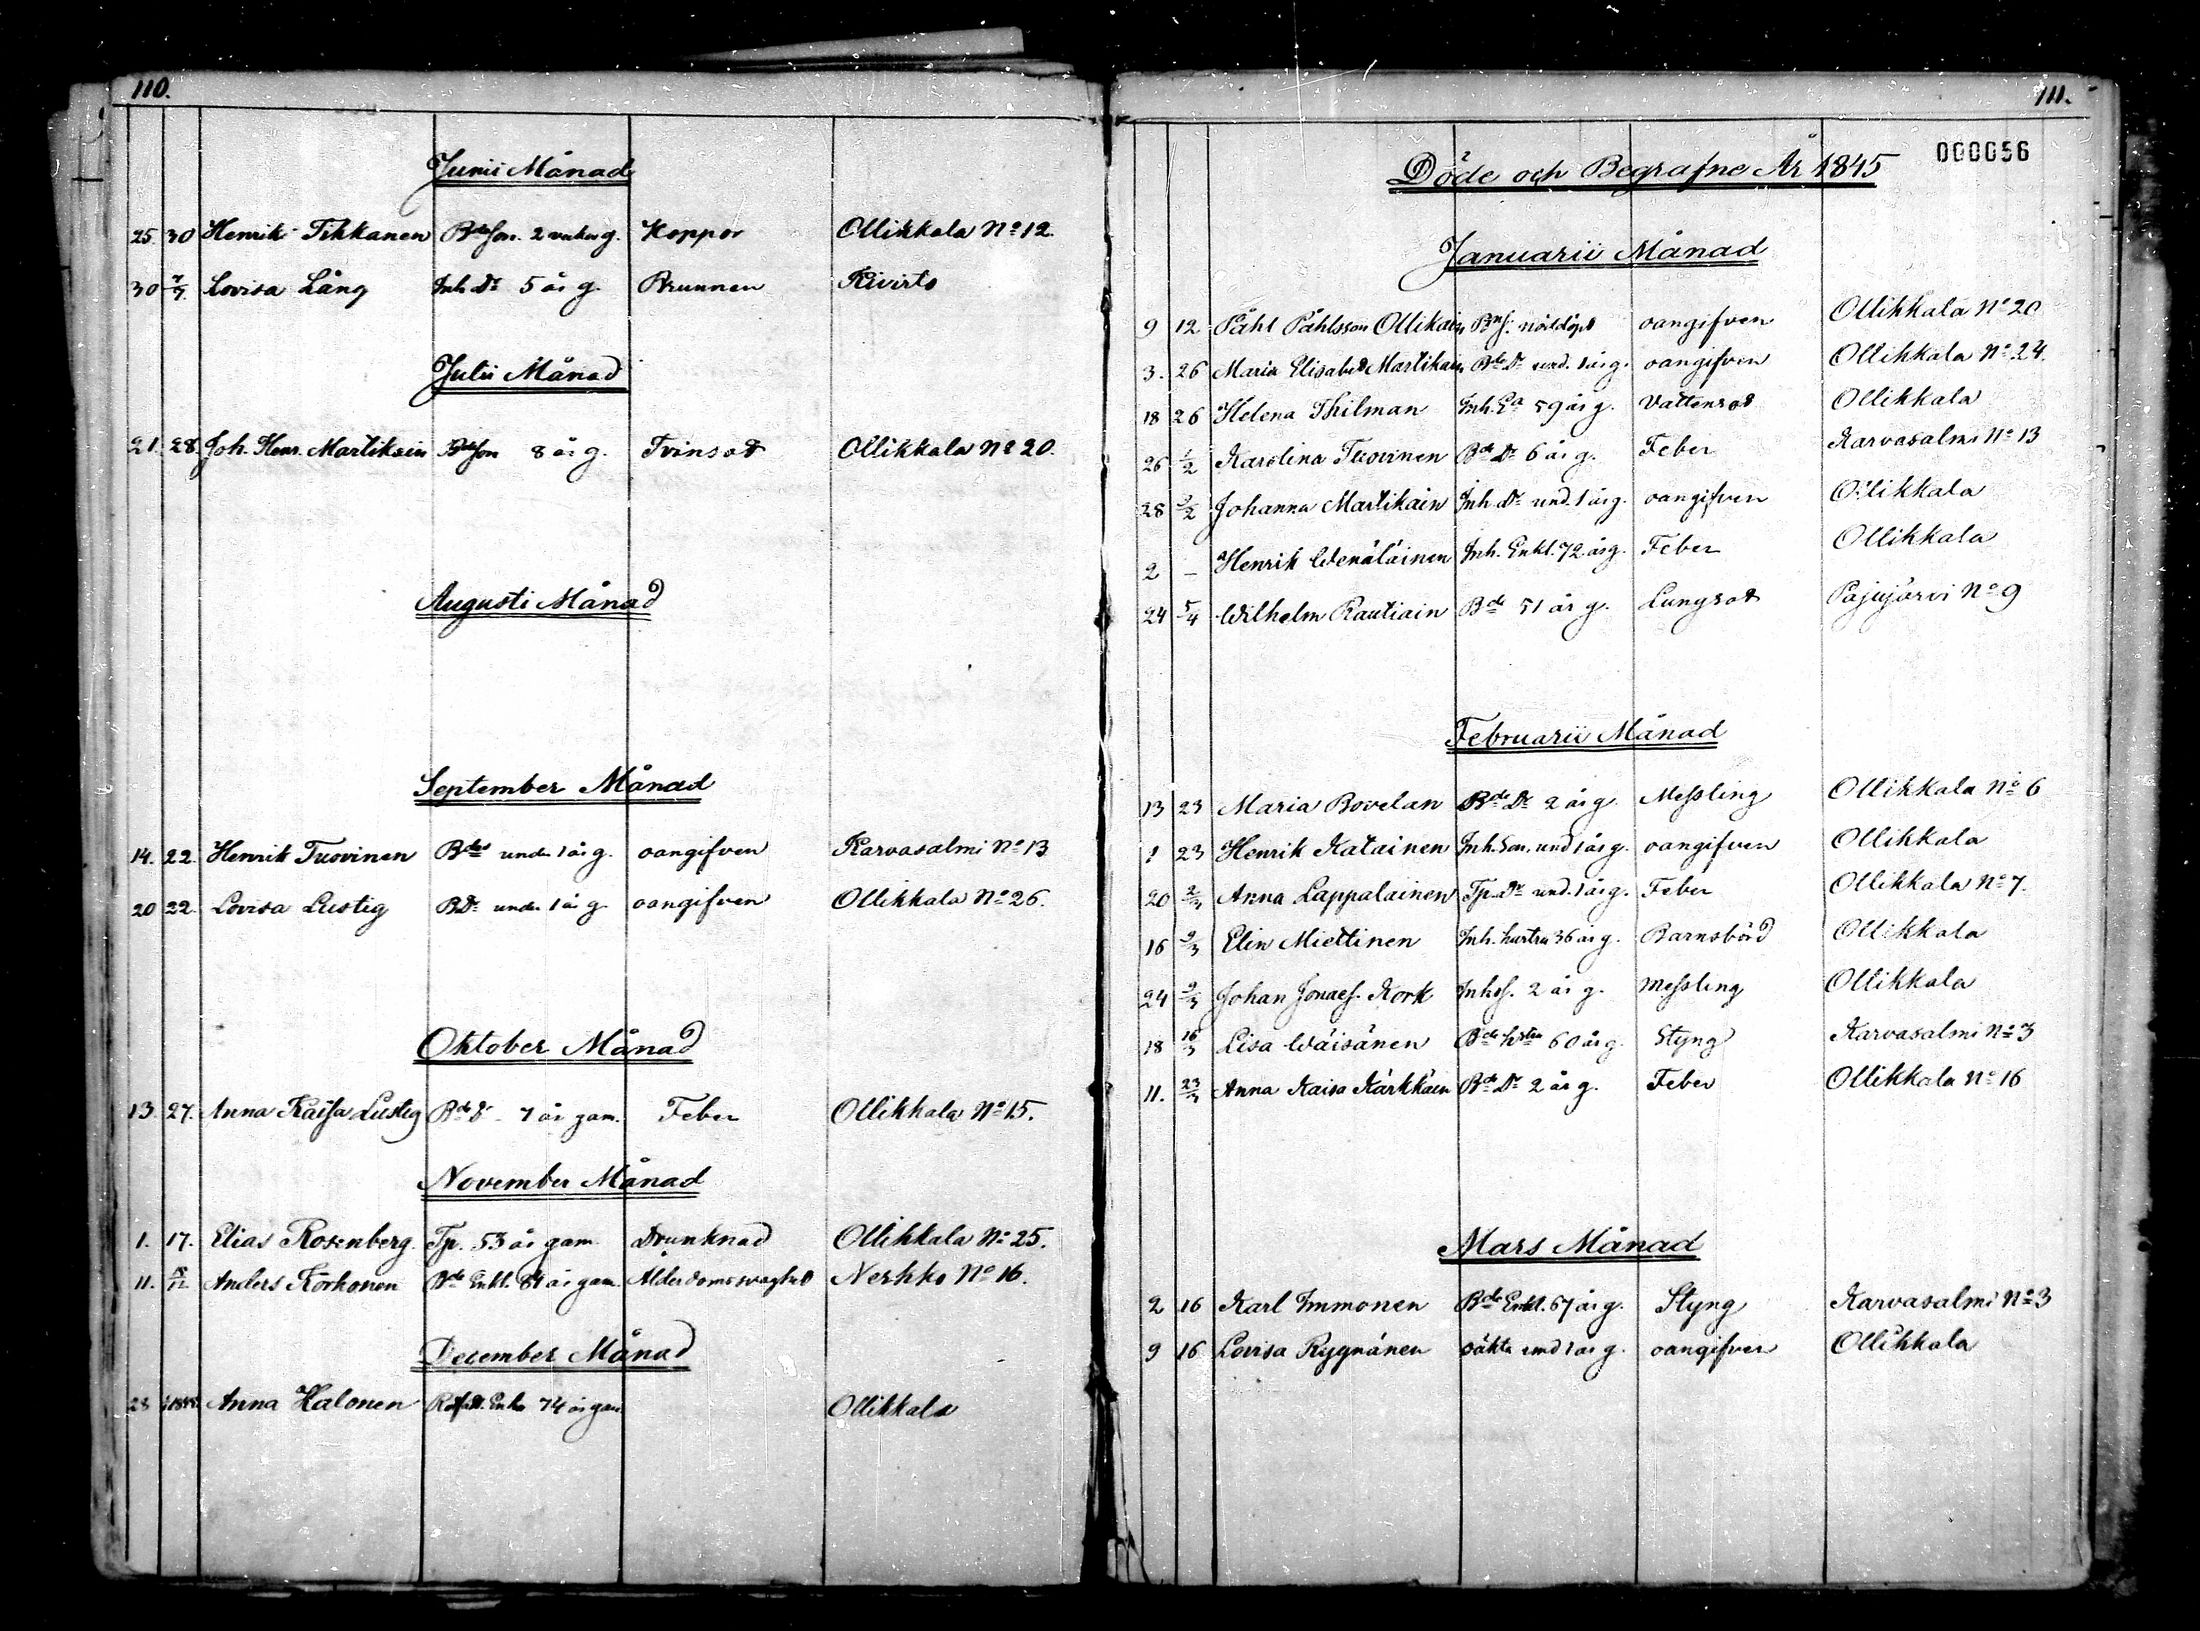 110.
Junii Månad
25. 30 Henrik Tikkanen Bdeson. 2 veckor g. Koppor Ollikkala No 12.
30 7/7. Lovisa Lång Inh. Dr 5 år g. Brunnen Kivirto
Julii Månad
21. 28. Joh. Henr. Martikain Bdeson 8 år g. Tvinsot Ollikkala No 20.
Augusti Månad
September Månad
14. 22. Henrik Tuovinen Bdes under 1 år g. oangifven Karvasalmi No 13
20 22. Lovisa Lustig B Dr under 1 år g. oangifven Ollikkala No 26.
Oktober Månad
13. 27. Anna Kaisa Lustig Bde D 7 år gam. Feber Ollikkala No 15.
November Månad
1. 17. Elias Rosenberg. Tp. 53 år gam Drunknad Ollikkala No 25.
11. Anders Korhonen Bde Enkl. 84 år gam. Ålderdomssvaghet Nerkko No 16.
December Månad
28 Anna Halonen Enka 74 år gam. Ollikkala
111.
000056
Döde och Begrafne År 1845
Januarii Månad
9 12 Påhl Påhlsson Ollikain nöddöpt oangifven Ollikkala No 20
3. 26 Maria Elisabet Martikain Bde Dr und. 1 år g. oangifven Ollikkala No 24.
18 26 Helena Thilman Inh. Ea 59 år g. Vattensot Ollikkala
26 1/2 Karolina Tuovinen Bde Dr 6 år g. Feber Karvasalmi No 13
28 2/2 Johanna Martikain Inh. Dr und. 1 år g. oangifven Ollikkala
2 – Henrik Wenäläinen Inh. Enkl. 72 år g. Feber Ollikkala
24 5/4 Wilhelm Rautiain Bde 51 år g. Lungsot Pajujärvi No 9
Februarii Månad
13 23 Maria Bovelan Bde Dr 2 år g. Messling Ollikkala No 6
? 23 Henrik Katainen Inh. Son, und 1 år g. oangifven Ollikkala
20 2/3 Anna Lappalainen Tp. Dr und. 1 år g. Feber Ollikkala No 7.
16 9/3 Elin Miettinen Inh. hustru 36 år g. Barnsbörd Ollikkala
24 9/3 Johan Jonaes. Kork Inhs. 2 år g. Messling Ollikkala
18 16/3 Lisa Wäisänen Bde hstru 60 år g. Styng Karvasalmi No 3
11. 23/3 Anna Kaisa Kärkkäin Bde Dr 2 år g. Feber Ollikkala No 16
Mars Månad
2 16 Karl Immonen Bde Enkl. 67 år g. Styng Karvasalmi No 3
9 16 Lovisa Rygnänen oäkta und 1 år g. oangifven Ollikkala